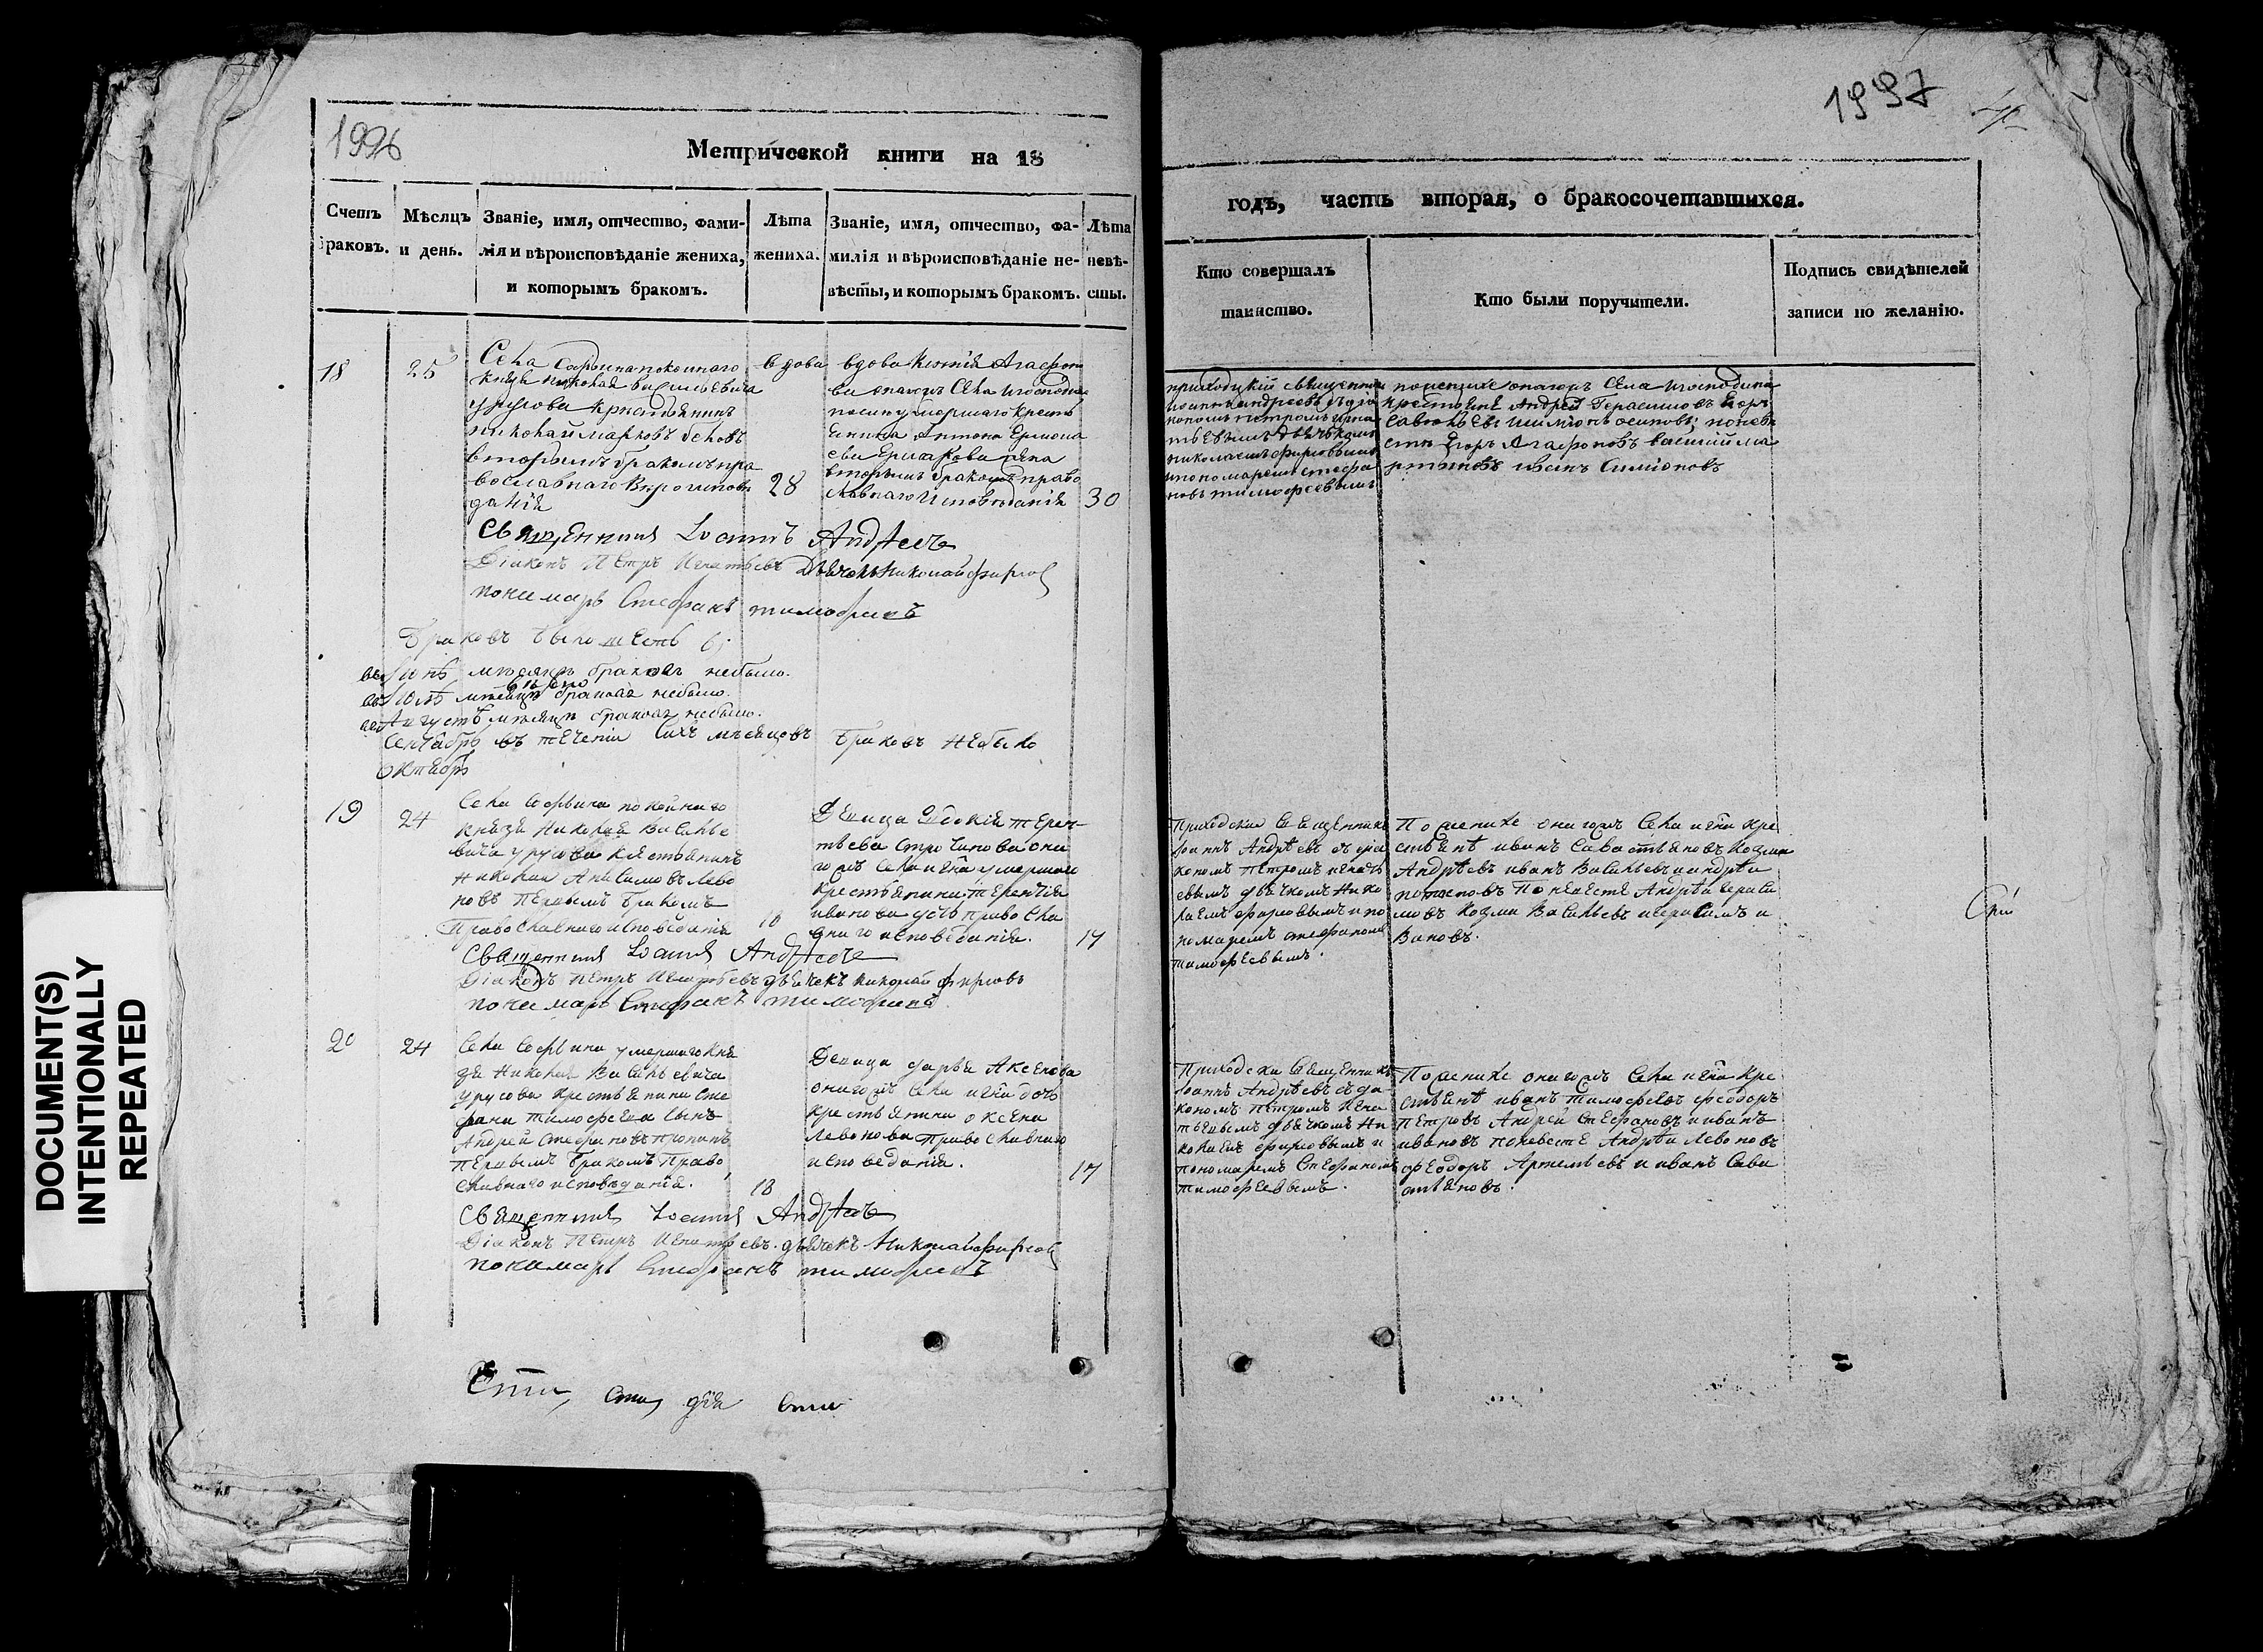 1996
Метрической книги на 18
Счетъ браковъ.
Мѣсяцъ и день.
Званіе, имя, отчество, фами-
лія и вѣроисповѣданіе жениха,
и которымъ бракомъ.
Лѣта
жениха.
Званіе, имя, отчество, фа-
милія и вѣроисповѣданіе не-
вѣсты, и которымъ бракомъ.
Лѣта
невѣ-
сты.
18
25
Села Софьина покойнаго
Князя Николая Васильевича
Урусова крестьянинъ
Николай Марковъ
вторымъ бракомъ пра
вославнаго
данія
вдова
28
вдова Агафоно
ва Села
умершаго кресть
янина Антона
вторымъ бракомъ право
славнаго Исповѣданія
30
Священникъ Іоаннъ Андреевъ
Діаконъ Петръ Игнатьевъ Дьячекъ Николай Фирсов
пономарь Стефанъ тимофеевъ
Браковъ было шесть 6.
въ Іюнѣ мѣсяцѣ браковъ небыло.
въ Іюлѣ мѣсяцѣ браковъ небыло.
въ Августѣ мѣсяцѣ браковъ небыло.
Сентябрь въ теченіи сихъ мѣсяцовъ браковъ небыло
Октябрь
19
24
Села Софьина покойнаго
Князя Николая Василье
вича урусова крестьянинъ
Николай Анисимовъ Лево
новъ первымъ бракомъ
Православнаго исповеданія
18
Девица Евдокія терен-
тьева она
гожъ Села и Гна умершаго
крестьянина терентія
иванова дочь правосла
внаго исповеданія.
17
Священникъ Іоаннъ Андреевъ
Діаконъ Петръ Игнатьевъ дьячекъ николай фирсовъ
пономарь Стефанъ тимофеевъ
20
24
Села Софьина умершаго Кня
зя Николая Васильевича
урусова крестьянина Сте
фана тимофеева Сынъ
Андрей Стефановъ
первымъ бракомъ Право
славнаго исповѣданія.
18
Девица дарья Аксенова
онагожъ Села и Гна дочь
крестьянина оксена
левонова православнаго
исповеданія.
17
Священникъ Іоаннъ Андреевъ
Діаконъ Петръ Игнатьевъ. дьячекъ Николай Фирсов
пономарь Стефанъ тимофеевъ
1997
годъ, часть вторая, о бракосочетавшихся.
Кто совершалъ
таинство.
Кто были поручители.
Подпись свидѣтелей
записи по желанію.
приходскій священник
іоаннъ андреевъ съ діа
кономъ петромъ игна
тьевымъ дьячькомъ
николаемъ фирсовымъ
и пономаремъ стефа
номъ тимофеевымъ
по женихе онагожъ Села и господина
крестьяне Андрей Герасимовъ Егоръ
осиповъ; по неве
сте Егоръ Агафоновъ василий ма
ртыновъ иванъ Симіоновъ
Приходскій Священникъ
Іоаннъ Андрѣевъ съ діа
кономъ Петромъ игнать
евымъ дьячкомъ Нико
лаемъ фирсовымъ и по
номаремъ стефаномъ
тимофеевымъ.
По женихе онагожъ Села и Гна кре
стьянѣ иванъ Савастьяновъ Козма
Андрѣевъ иванъ Васильевъ и андрѣй
потаповъ По невесте Андрѣй гераси
мовъ Козма Васильевъ и герасимъ и
вановъ.
Приходскій Священникъ
Іоаннъ Андрѣевъ съ діа
кономъ петромъ Игна
тьевымъ дьячкомъ Ни
колаемъ фирсовымъ и
пономаремъ Стефаномъ
тимофеевымъ.
По женихе онагожъ Села и Гна кре
стьянѣ иванъ тимофеевъ феодоръ
Петровъ Андрей Стефановъ и иванъ
ивановъ по невесте Андрѣй Левоновъ
феодоръ Артемьевъ и иванъ Сава
стьяновъ.
DOCUMENT(S)
INTENTIONALLY
REPEATED